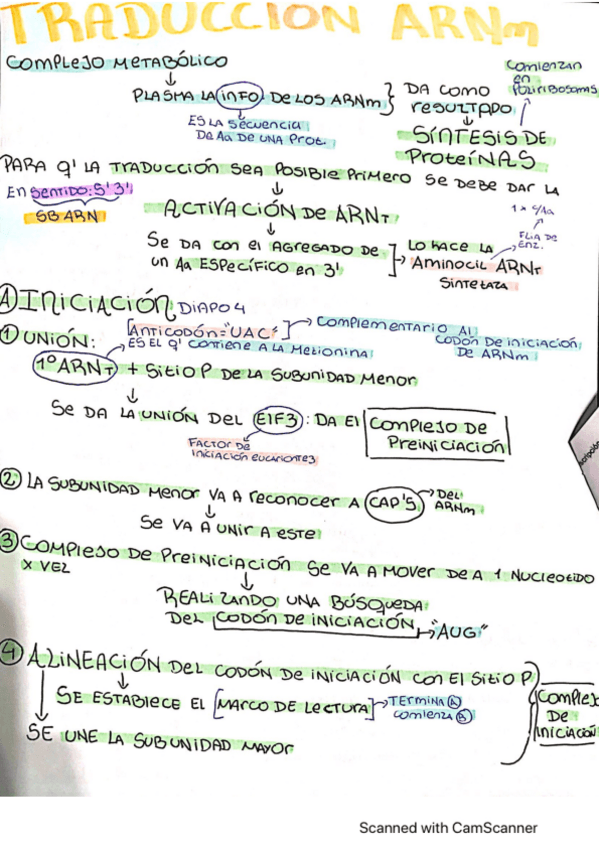 TRADUCCION ARNm
COMPLEJO METABÓLICO
PLASMA LA INFO DE LOS ARNm
ES LA SECUENCIA
DE Aa DE UNA PROT.
DA COMO
RESULTADO
COMIENZAN
EN
POLIRIBOSOMAS
SÍNTESIS DE
PROTEÍNAS
PARA q' LA TRADUCCIÓN SEA POSIBLE PRIMERO SE DEBE DAR LA
EN SENTIDO: 5' 3'
SB ARN
ACTIVACIÓN DE ARNt
SE DA CON EL AGREGADO DE
UN Aa ESPECÍFICO EN 3'
LO HACE LA
AMINOCIL ARNt
SINTETAZA
FLIA DE
ENZ.
1 x c/Aa
A INICIACIÓN DIAPO 4
① UNIÓN:
[ANTICODÓN="UAC"]
COMPLEMENTARIO AL
CODÓN DE INICIACIÓN
DE ARNm
ES EL q' CONTIENE A LA METIONINA
1º ARNt + SITIO P DE LA SUBUNIDAD MENOR
SE DA LA UNIÓN DEL EIF3: DA EL COMPLEJO DE
PREINICIACIÓN
FACTOR DE
INICIACIÓN EUCARIONTE3
② LA SUBUNIDAD MENOR VA A RECONOCER A CAP'5 DEL
ARNm
SE VA A UNIR A ESTE
③ COMPLEJO DE PREINICIACIÓN SE VA A MOVER DE A 1 NUCLEOTIDO
X VEZ
REALIZANDO UNA BÚSQUEDA
DEL CODÓN DE INICIACIÓN "AUG"
④ ALINEACIÓN DEL CODÓN DE INICIACIÓN CON EL SITIO P
SE ESTABLECE EL [MARCO DE LECTURA]
TERMINA Ⓐ
COMIENZA Ⓑ
SE UNE LA SUBUNIDAD MAYOR
COMPLEJ
DE
INICIACIÓN
Scanned with CamScanner